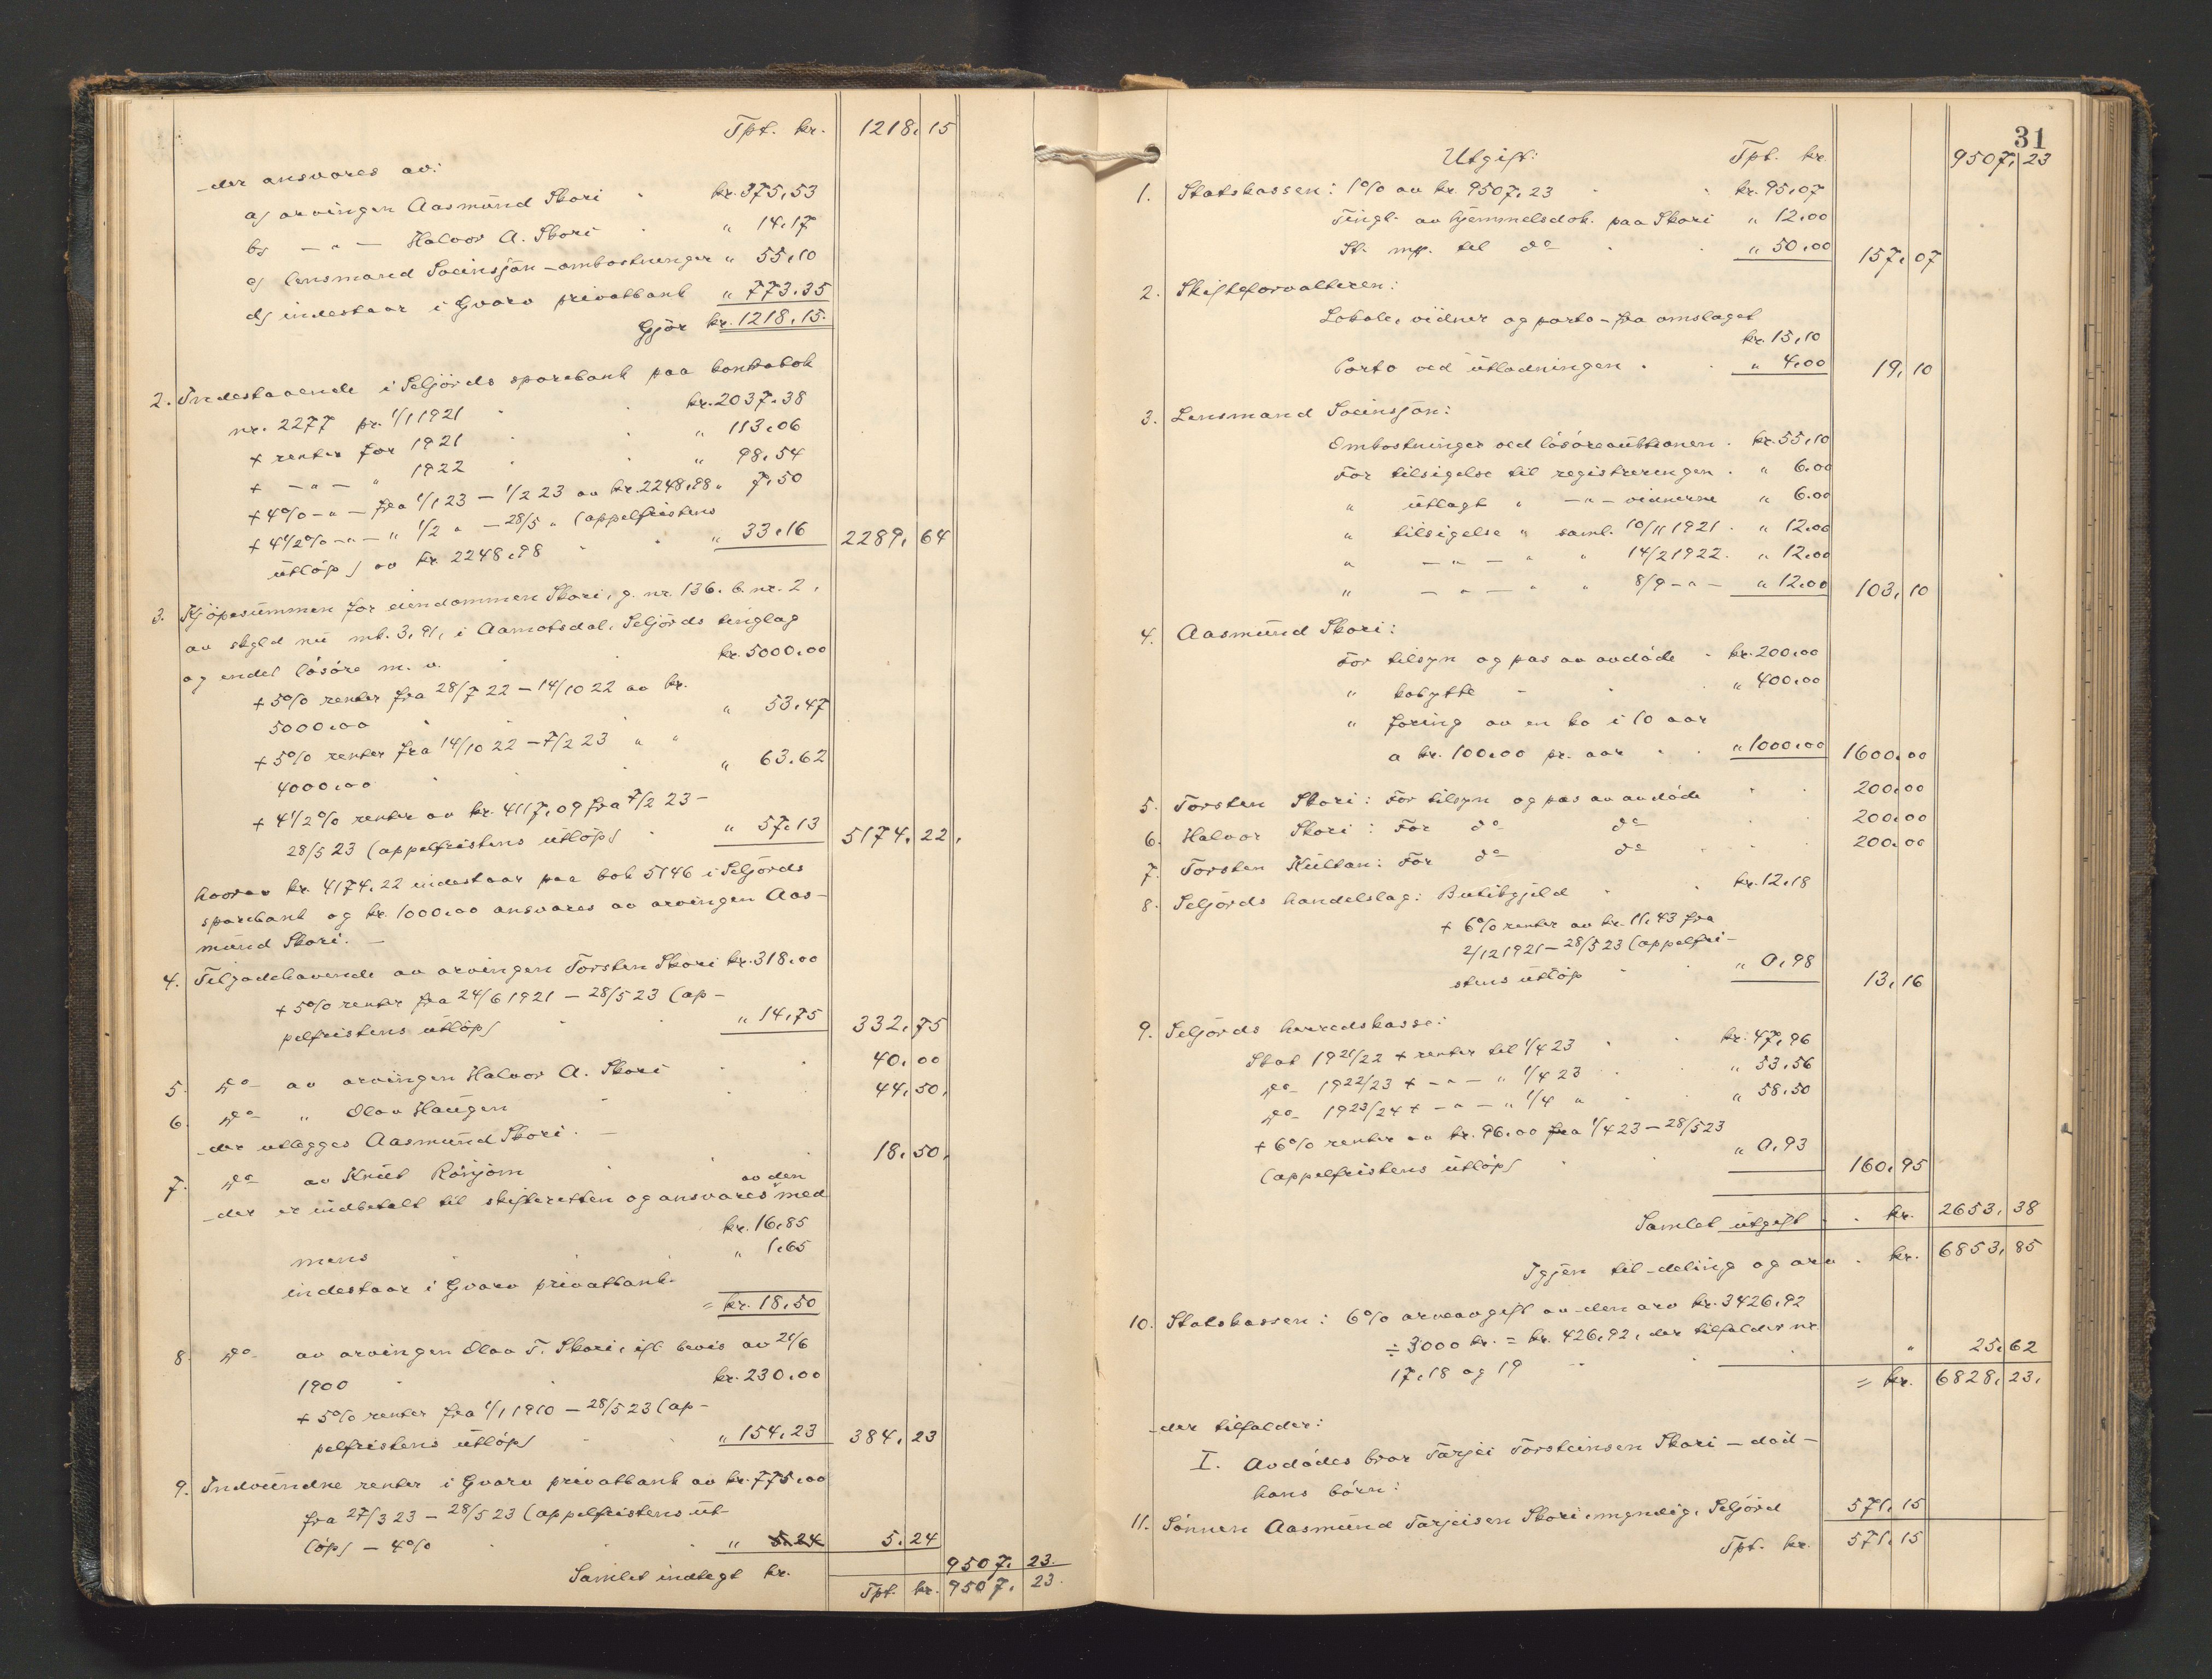 Tpt. kr. 1218,15
der ansvares av:
a) arvingen Aasmund Skori kr. 375,53
b) — " — Halvor A. Skori " 14,17
c) lensmand Sveinsjon - omkostninger " 55,10
d) indestaar i Gvarv privatbank " 773,35
Gjør kr. 1218,15.
2. Indestaaende i Seljords sparebank paa kontrabok
nr. 2277 pr. 1/1 1921 kr. 2037,38
+ renter for 1921 " 113,06
+ — " — " 1922 " 98,54
+ 4% — " — fra 1/1 23 — 1/2 23 av kr. 2248,98 " 7,50
+ 4 1/2% — " — " 1/2 " — 28/5 " (appelfristens
utløp) av kr. 2248,98 " 33,16 2289,64
3. Kjøpesummen for eiendommen Skori, g. nr. 136. b. nr. 2,
av skyld nu mk. 3,91, i Aamotsdal, Seljords tinglag
og endel løsøre m. v. kr. 5000,00
+ 5% renter fra 28/7 22 — 14/10 22 av kr.
5000,00 " 53,47
+ 5% renter fra 14/10 22 — 7/2 23 " "
4000,00 " 63,62
+ 4 1/2% renter av kr. 4117,09 fra 7/2 23 —
28/5 23 (appelfristens utløp) " 57,13 5174,22,
hvorav kr. 4174,22 indestaar paa bok 5146 i Seljords
sparebank og kr. 1000,00 ansvares av arvingen Aas-
mund Skori. —
4. Tilgodehavende av arvingen Torsten Skori kr. 318,00
+ 5% renter fra 24/6 1921 — 28/5 23 (ap-
pelfristens utløp) " 14,75 332,75
5. Do av arvingen Halvor A. Skori 40,00
6. Do " Olav Haugen 44,50,
der utlægges Aasmund Skori. —
7. Do av Knut Rønjom 18,50,
av den
der er indbetalt til skifteretten og ansvares med
kr. 16,85
mens " 1,65
indestaar i Gvarv privatbank.
= kr. 18,50
8. Do av arvingen Olav T. Skori, ifl. bevis av 21/6
1900 kr. 230,00
+ 5% renter fra 1/1 1910 — 28/5 23 (ap-
pelfristens utløp) " 154,23 384,23
9. Indvundne renter i Gvarv privatbank av kr. 775,00
fra 27/3 23 — 28/5 23 (appelfristens ut-
løp) — 4% " 5.24 5,24
Samlet indtegt kr. 9507,23.
Tpt. kr. 9507,23.
31
Utgift: Tpt. kr. 9507,23
1. Statskassen: 1% av kr. 9507,23 kr. 95,07
Tingl. av hjemmelsdok. paa Skori " 12,00
St. mp. til do " 50,00 157,07
2. Skifteforvalteren:
Lokale, vidner og porto - fra omslaget
kr. 15,10
Porto ved utlodningen " 4,00 19,10
3. Lensmand Sveinsjon:
Omkostninger ved løsøreauktionen kr. 55,10
For tilsigelse til registreringen " 6,00
" utlagt " — " — vidnerne " 6,00
" tilsigelse " saml. 10/11 1921 " 12,00
" — " — " " 14/2 1922. " 12,00
" — " — " " 8/9 — " — " 12,00 103,10
4. Aasmund Skori:
For tilsyn og pas av avdøde kr. 200,00
" kobytte " 400,00
" foring av en ko i 10 aar
a kr. 100,00 pr. aar " 1000,00 1600,00
5. Torsten Skori: For tilsyn og pas av avdøde 200,00
6. Halvor Skori: For do do 200,00
7. Torsten Kultan: For do do 200,00
8. Seljords handelslag: Butikgjeld kr. 12,18
+ 6% renter av kr. 11,43 fra
2/12 1921 — 28/5 23 (appelfri-
stens utløp " 0,98 13,16
9. Seljords herredskasse:
Skat 1921/22 + renter til 1/4 23 kr. 47,96
Do 1922/23 + — " — " 1/4 23 " 53,56
Do 1923/24 + — " — " 1/4 " " 58,50
+ 6% renter av kr. 96,00 fra 1/4 23 — 28/5 23
(appelfristens utløp) " 0,93 160,95
Samlet utgift kr. 2653,38
Igjen til deling og arv kr. 6853,85
10. Statskassen: 6% arveavgift av den arv kr. 3426,92
÷ 3000 kr. = kr. 426,92, der tilfalder nr.
17, 18 og 19 " 25,62
= kr. 6828,23,
der tilfalder:
I. Avdødes bror Tarjei Torsteinsen Skori — død —
hans børn:
11. Sønnen Aasmund Tarjeisen Skori, myndig, Seljord 571,15
Tpt. kr. 571,15